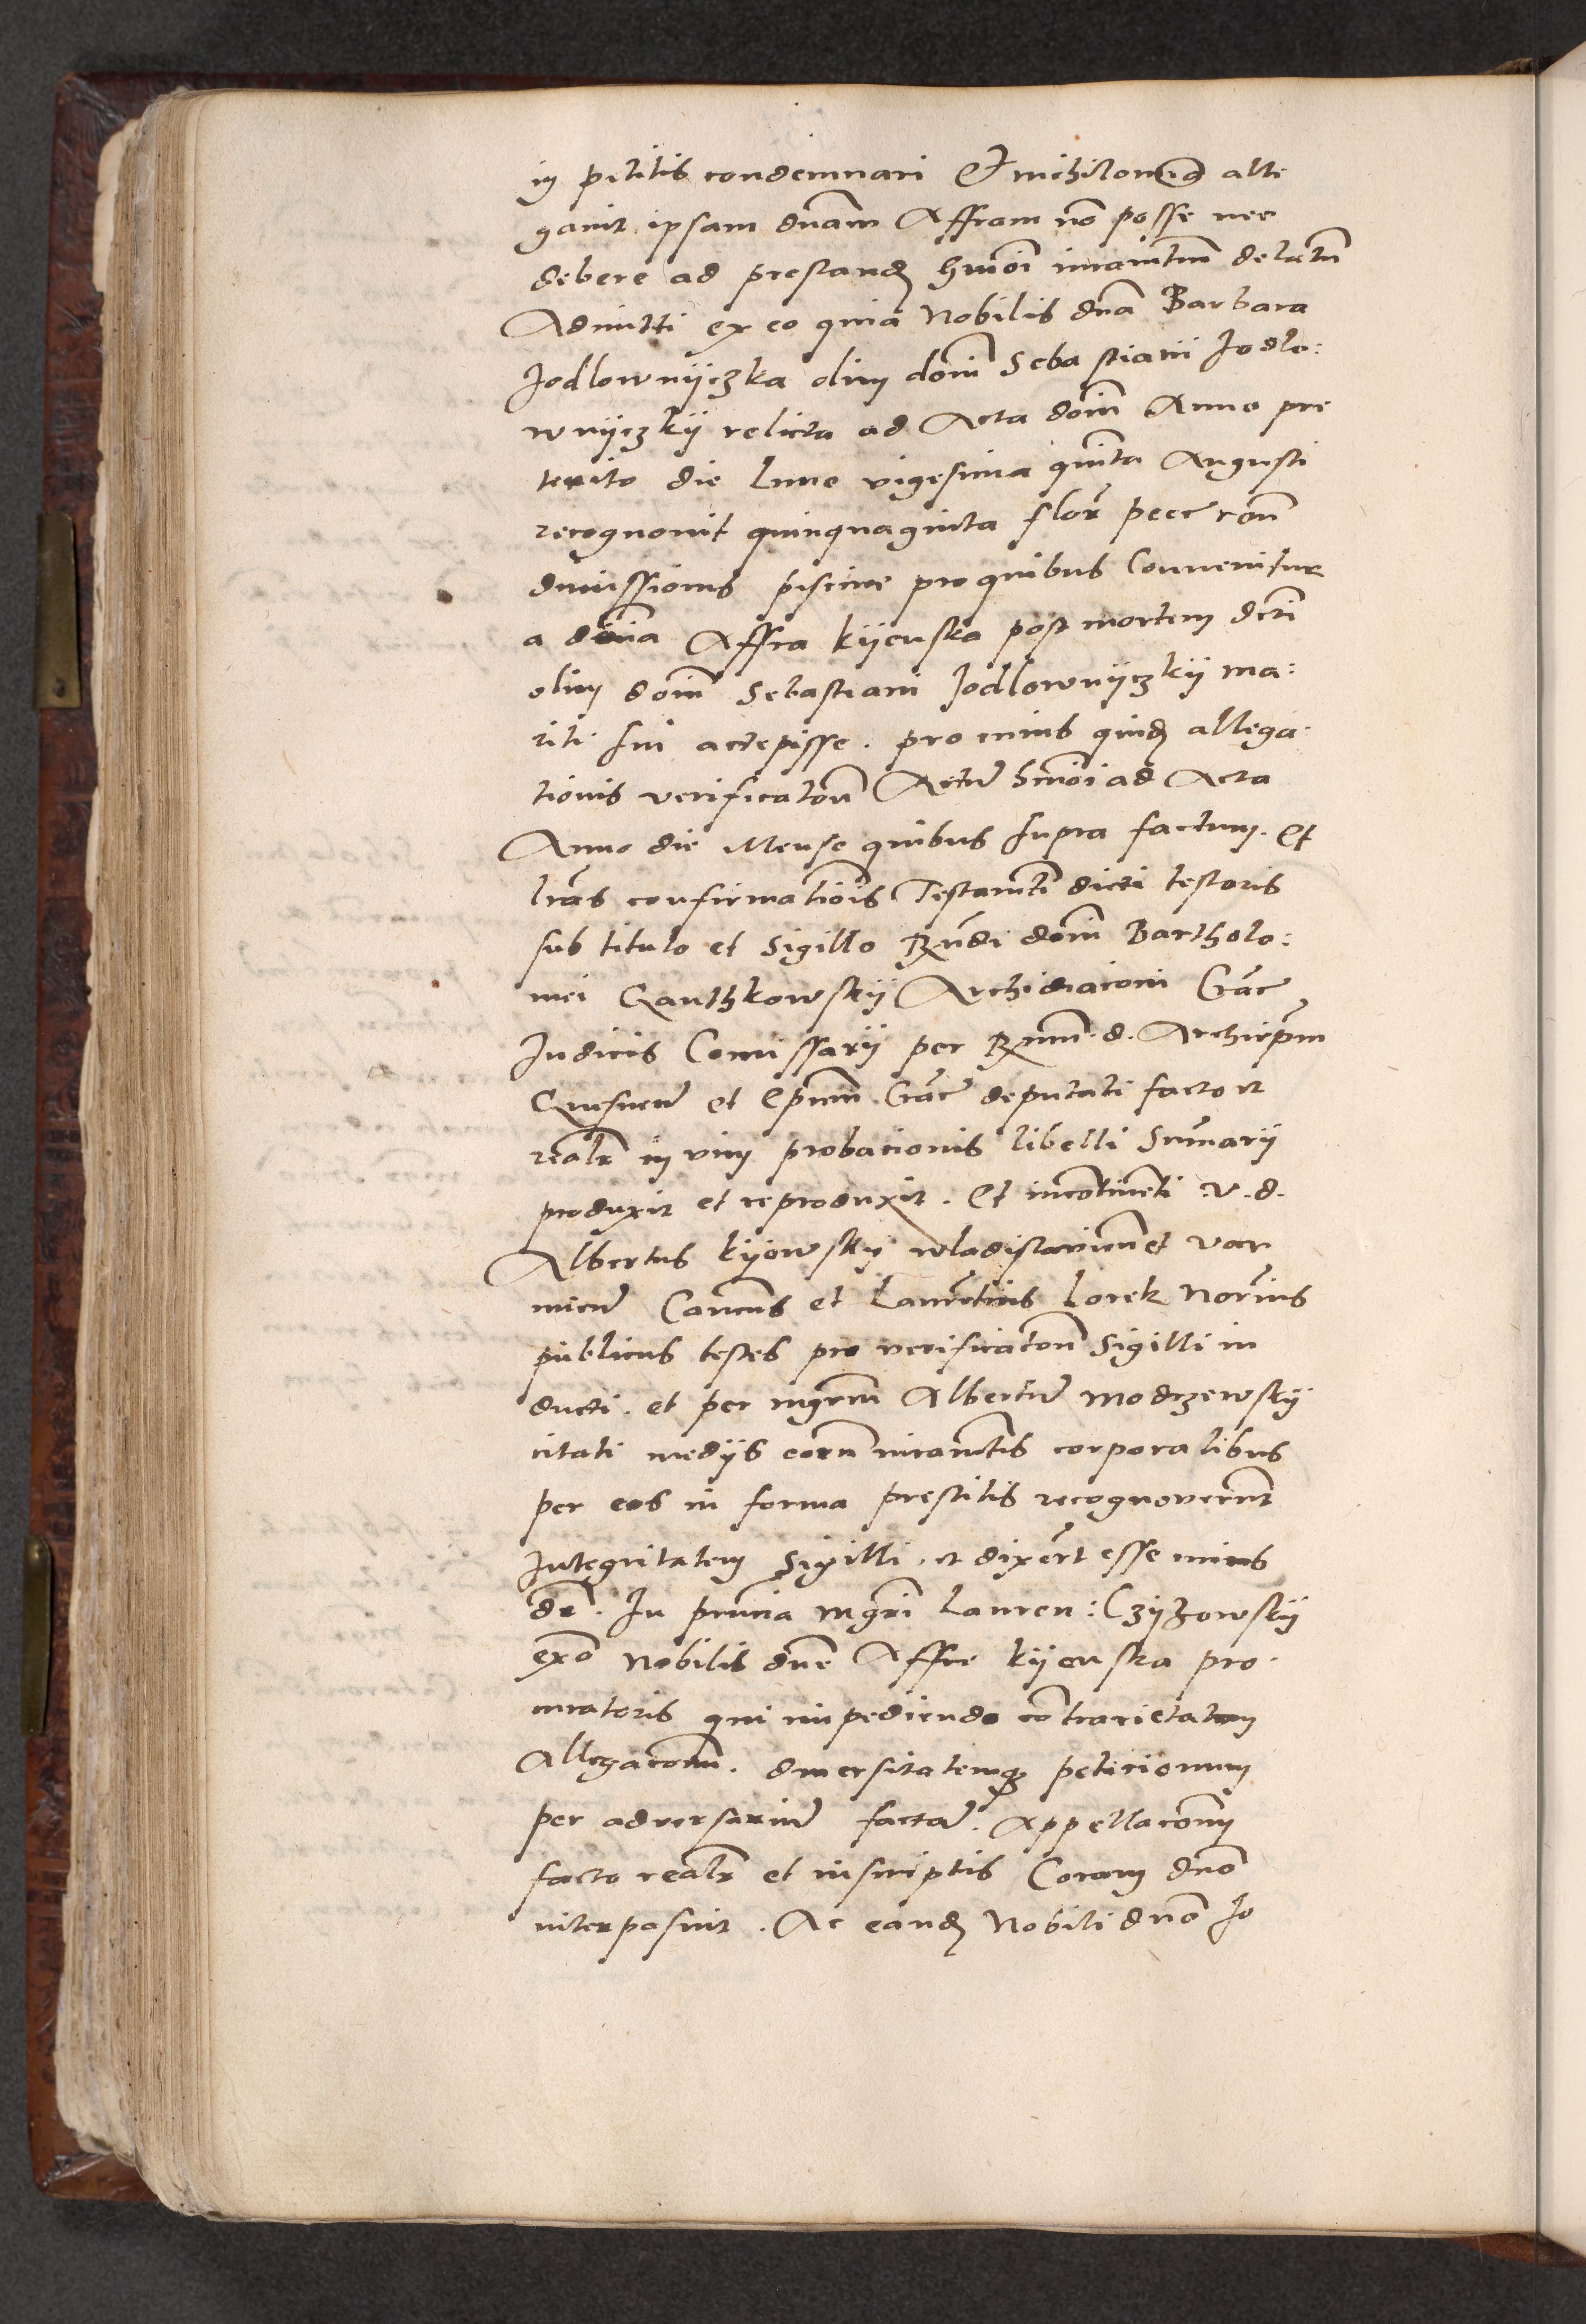 in petitis condemnari Et nihilomi(us) alle
gavit ipsam dnam Affram no posse nec
debere ad prestand hmoi iuramtum delatu
Admitti ex eo quia Nobilis dna Barbara
Jodlownyczka olim domi Sebastiani Jodlo:
wnyczky relicta ad Acta domi Anno pre
terito die lune vigesima quinta Augusti
recognovit quinquaginta flor pecc ron
dmissionis piscine pro quibus Convenitur
a domina Affra kijenska post mortem dicti
olim domi Sebastiani Jodlownyczky ma:
riti sui accepisse . pro cuius quid allega
tionis verificaton Actu hmoi ad Acta
Anno die Mense quibus supra factum . Et
lras confirmationis Testamti dicti testoris
sub titulo et Sigillo Rndi domi Bartholo:
mei Ganthkowsky Archidiaconi Crac
Judicis Comissarij per Rmum . d . Archiepm
Gnesnen et Epum Crac deputati facto et
realr in vim probacionis libelli Sumarij
produxit et reproduxit . Et incontinenti . v . d .
Albertus kijowsky wladislavien et var
mien Canonus et Laurentius Lorek Norius
publicus testes pro verificaton Sigilli in
ducti . et per mgrm Albertu modrzewsky
citati medijs eorum iuramtis corporalibus
per eos in forma prestitis recognoverunt
Integritatem Sigilli . et dixert esse eius
de . In pntia mgri Lauren : Czyzowsky
exo Nobilis dne Affre kijenska pro
curatoris qui impediendo contrarietatem
Allegaconu . diversitatemq peticionum
per adversariu factar . Appellaconem
facto realr et inscriptis Coram dno
interposuit . Ac eand Nobili dno Jo